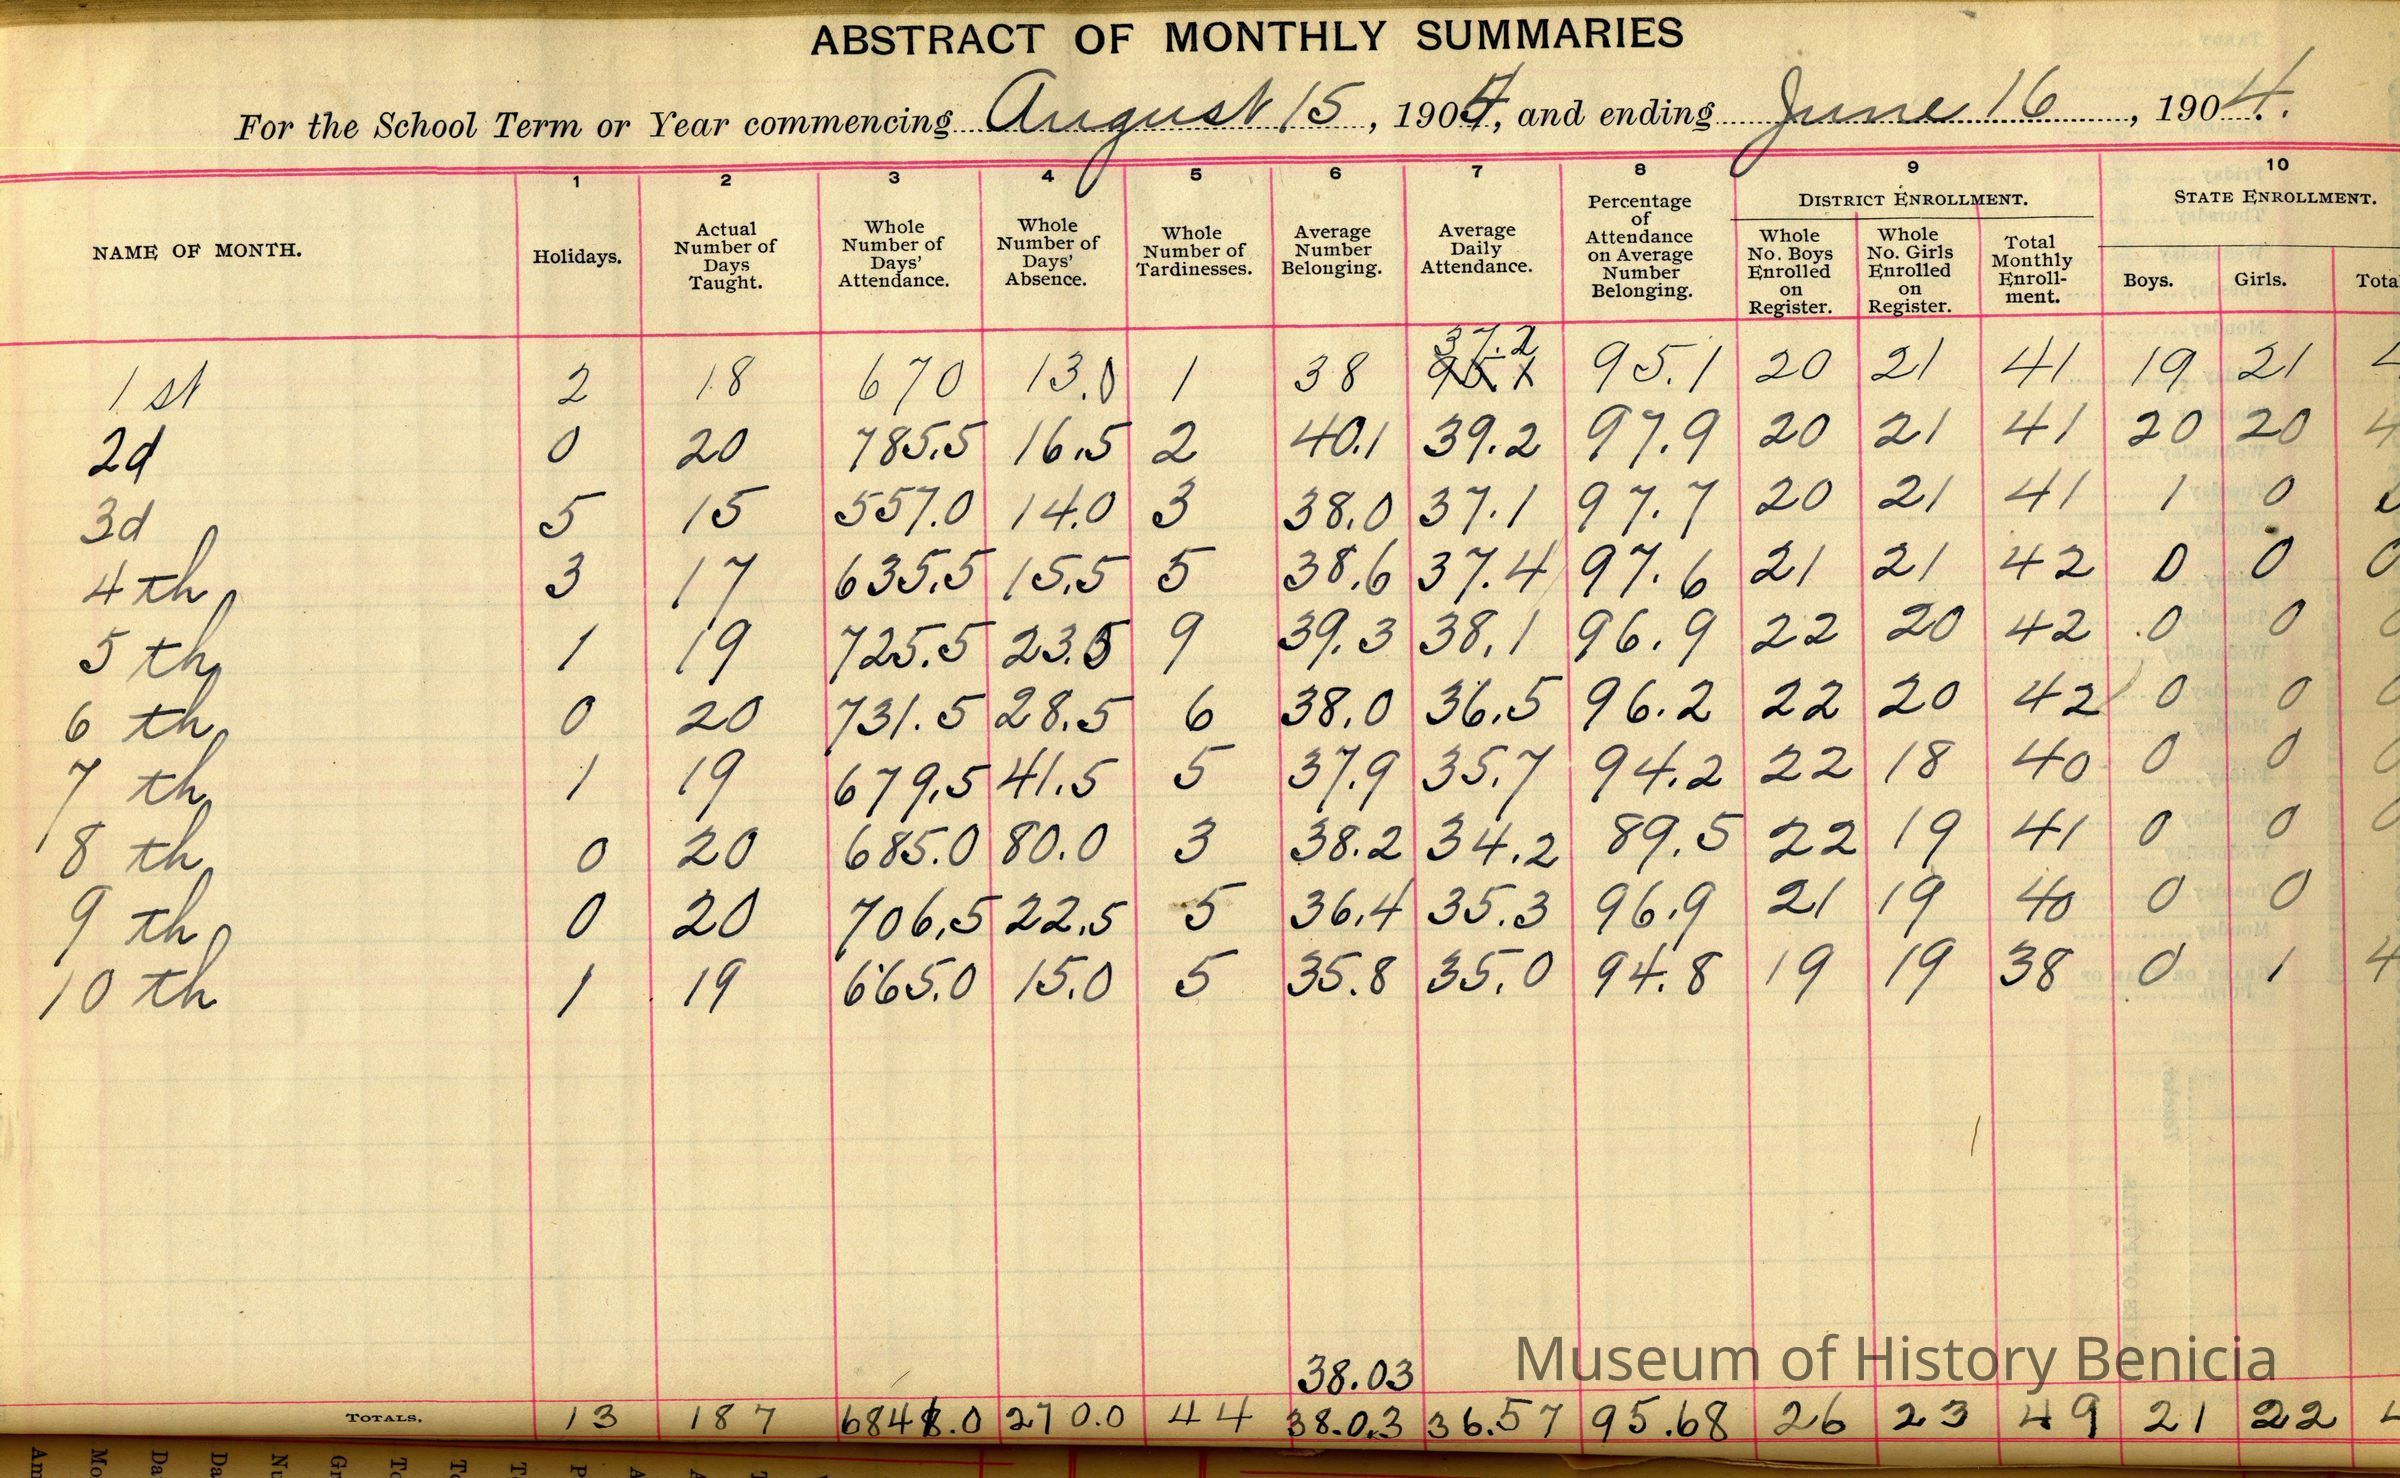 ABSTRACT OF MONTHLY SUMMARIES
For the School Term or Year commencing August 15, 1904, and ending June 16, 1904.
1 2 3 4 5 6 7 8 9 10
NAME OF MONTH. Holidays. Actual Number of Days Taught. Whole Number of Days' Attendance. Whole Number of Days' Absence. Whole Number of Tardinesses. Average Number Belonging. Average Daily Attendance. Percentage of Attendance on Average Number Belonging. DISTRICT ENROLLMENT. Whole No. Boys Enrolled on Register. Whole No. Girls Enrolled on Register. Total Monthly Enroll-ment. STATE ENROLLMENT. Boys. Girls. Tota
37.2
1st 2 18 670 13.0 1 38 95.1 95.1 20 21 41 19 21 4
2d 0 20 785.5 16.5 2 40.1 39.2 97.9 20 21 41 20 20 4
3d 5 15 557.0 14.0 3 38.0 37.1 97.7 20 21 41 1 0
4th 3 17 635.5 15.5 5 38.6 37.4 97.6 21 21 42 0 0 0
5th 1 19 725.5 23.5 9 39.3 38.1 96.9 22 20 42 0 0 0
6th 0 20 731.5 28.5 6 38.0 36.5 96.2 22 20 42 0 0 0
7th 1 19 679.5 41.5 5 37.9 35.7 94.2 22 18 40 0 0 0
8th 0 20 685.0 80.0 3 38.2 34.2 89.5 22 19 41 0 0 0
9th 0 20 706.5 22.5 5 36.4 35.3 96.9 21 19 40 0 0
10th 1 19 665.0 15.0 5 35.8 35.0 94.8 19 19 38 0 1 4
38.03
TOTALS. 13 187 6841.0 270.0 44 38.0.3 36.57 95.68 26 23 49 21 22 4
Museum of History Benicia